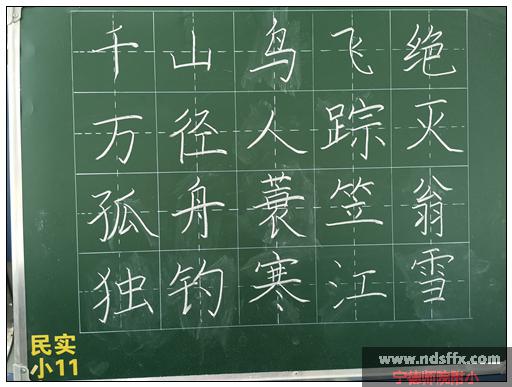 千山鸟飞绝
万径人踪灭
孤舟蓑笠翁
独钓寒江雪
民实
小11
www.ndsffx.com
宁德师院附小